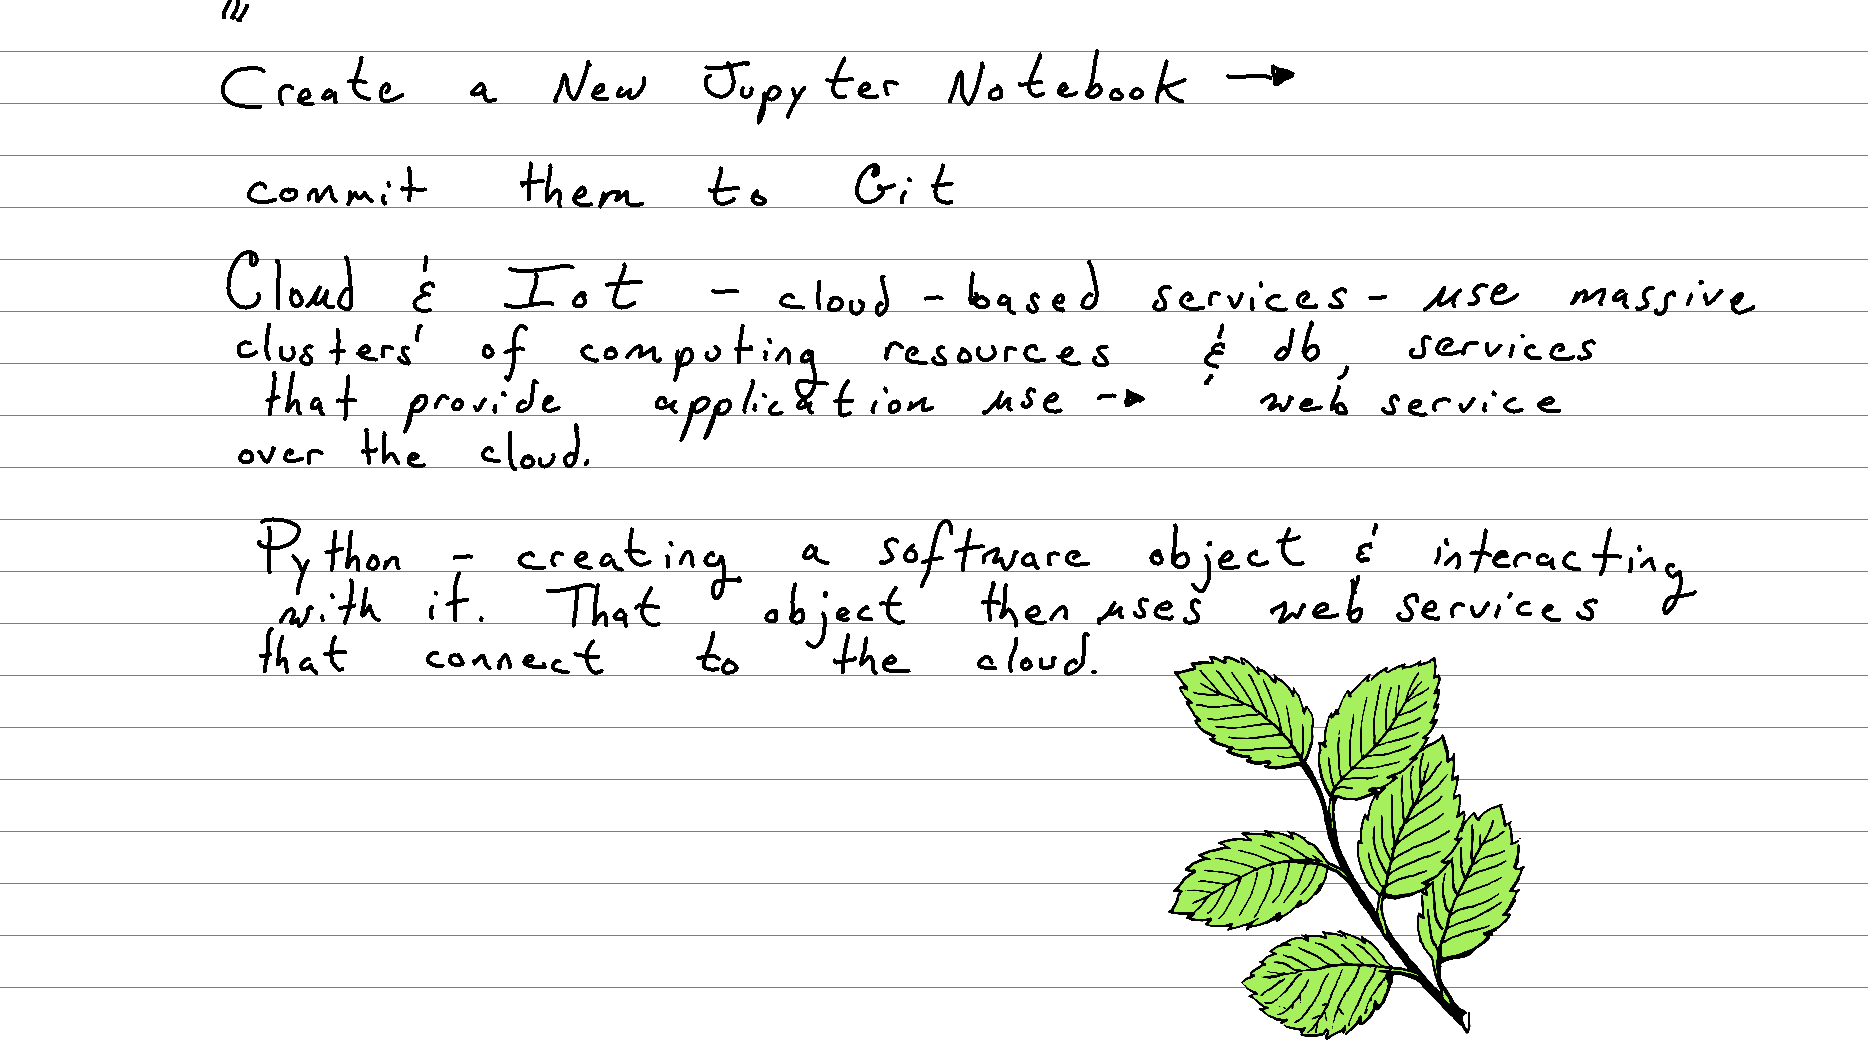 Create a New Jupyter Notebook →
commit them to Git
Cloud & Iot - cloud-based services - use massive
clusters' of computing resources & db services
that provide application use → web service
over the cloud.
Python - creating a software object & interacting
with it. That object then uses web services
that connect to the cloud.